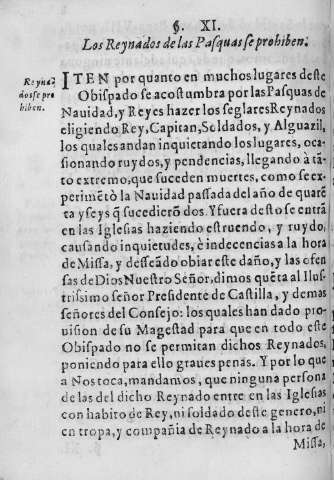 §. XI.
Los Reynados de las Pasquas se prohiben.
Reyna-
dos se pro
hiben.
ITEN por quanto en muchos lugares deste
Obispado se acostumbra por las Pasquas de
Nauidad, y Reyes hazer los seglares Reynados
eligiendo Rey, Capitan, Soldados, y Alguazil,
los quales andan inquietando los lugares, oca-
sionando ruydos, y pendencias, llegando à tã-
to extremo, que suceden muertes, como se ex-
perimẽtò la Nauidad passada del año de quarẽ
ta y seys q̃ sucedierõ dos. Y fuera desto se entrã
en las Iglesias haziendo estruendo, y ruydo,
causando inquietudes, è indecencias a la hora
de Missa, y desseãdo obiar este daño, y las ofen
sas de Dios Nuestro Señor, dimos quẽta al Ilus-
trissimo señor Presidente de Castilla, y demas
señores del Consejo: los quales han dado pro-
uision de su Magestad para que en todo este
Obispado no se permitan dichos Reynados,
poniendo para ello graues penas. Y por lo que
a Nos toca, mandamos, que ninguna persona
de las del dicho Reynado entre en las Iglesias
con habito de Rey, ni soldado deste genero, ni
en tropa, y compañia de Reynado a la hora de
Missa,